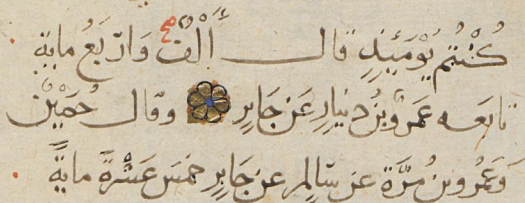 كُنْتُم يَوْمَئِذٍ قال أَلْفٌ وَارْبَعُ مايةٍ
تابَعه عَمرو بْنُ دينارٍ عَن جَابرٍ وقال حُصَيْنٌ
وَعَمْرُو بنُ مُرَّة عَن سَالمٍ عن جَابرٍ خمسَ عَشْرَةَ مايَةً